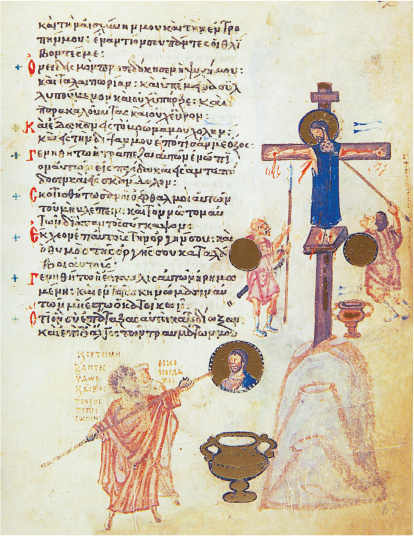 καὶ τὴν αἰσχύνην μου καὶ τὴν ἐντρο
πήν μου· ἐναντίον σου πάντες οἱ θλί
βοντές με:
Ὀνειδισμὸν προσεδόκησεν ἡ ψυχή μου:
καὶ ταλαιπωρίαν· καὶ ὑπέμεινα συλ
λυπούμενον καὶ οὐχ ὑπῆρξε· καὶ
παρακαλοῦντας καὶ οὐχ εὗρον:
Καὶ ἔδωκαν εἰς τὸ βρῶμά μου χολήν:
καὶ εἰς τὴν δίψαν μου ἐπότισάν με ὄξος:
Γενηθήτω ἡ τράπεζα αὐτῶν ἐνώπι
ον αὐτῶν εἰς παγίδα· καὶ εἰς ἀνταπό
δοσιν καὶ εἰς σκάνδαλον:
Σκοτισθήτωσαν οἱ ὀφθαλμοὶ αὐτῶν
τοῦ μὴ βλέπειν: καὶ τὸν νῶτον αὐ
τῶν διαπαντὸς σύγκαμψον:
Ἔκχεον ἐπ' αὐτοὺς τὴν ὀργήν σου: καὶ
ὁ θυμὸς τῆς ὀργῆς σου καταλά
βοι αὐτούς:
Γενηθήτω ἡ ἔπαυλις αὐτῶν ἠρημω
μένη: καὶ ἐν τοῖς σκηνώμασιν αὐ
τῶν μὴ ἔστω ὁ κατοικῶν:
Ὅτι ὃν σὺ ἐπάταξας αὐτοὶ κατεδίωξαν
καὶ ἐπὶ τὸ ἄλγος τῶν τραυμάτων μου